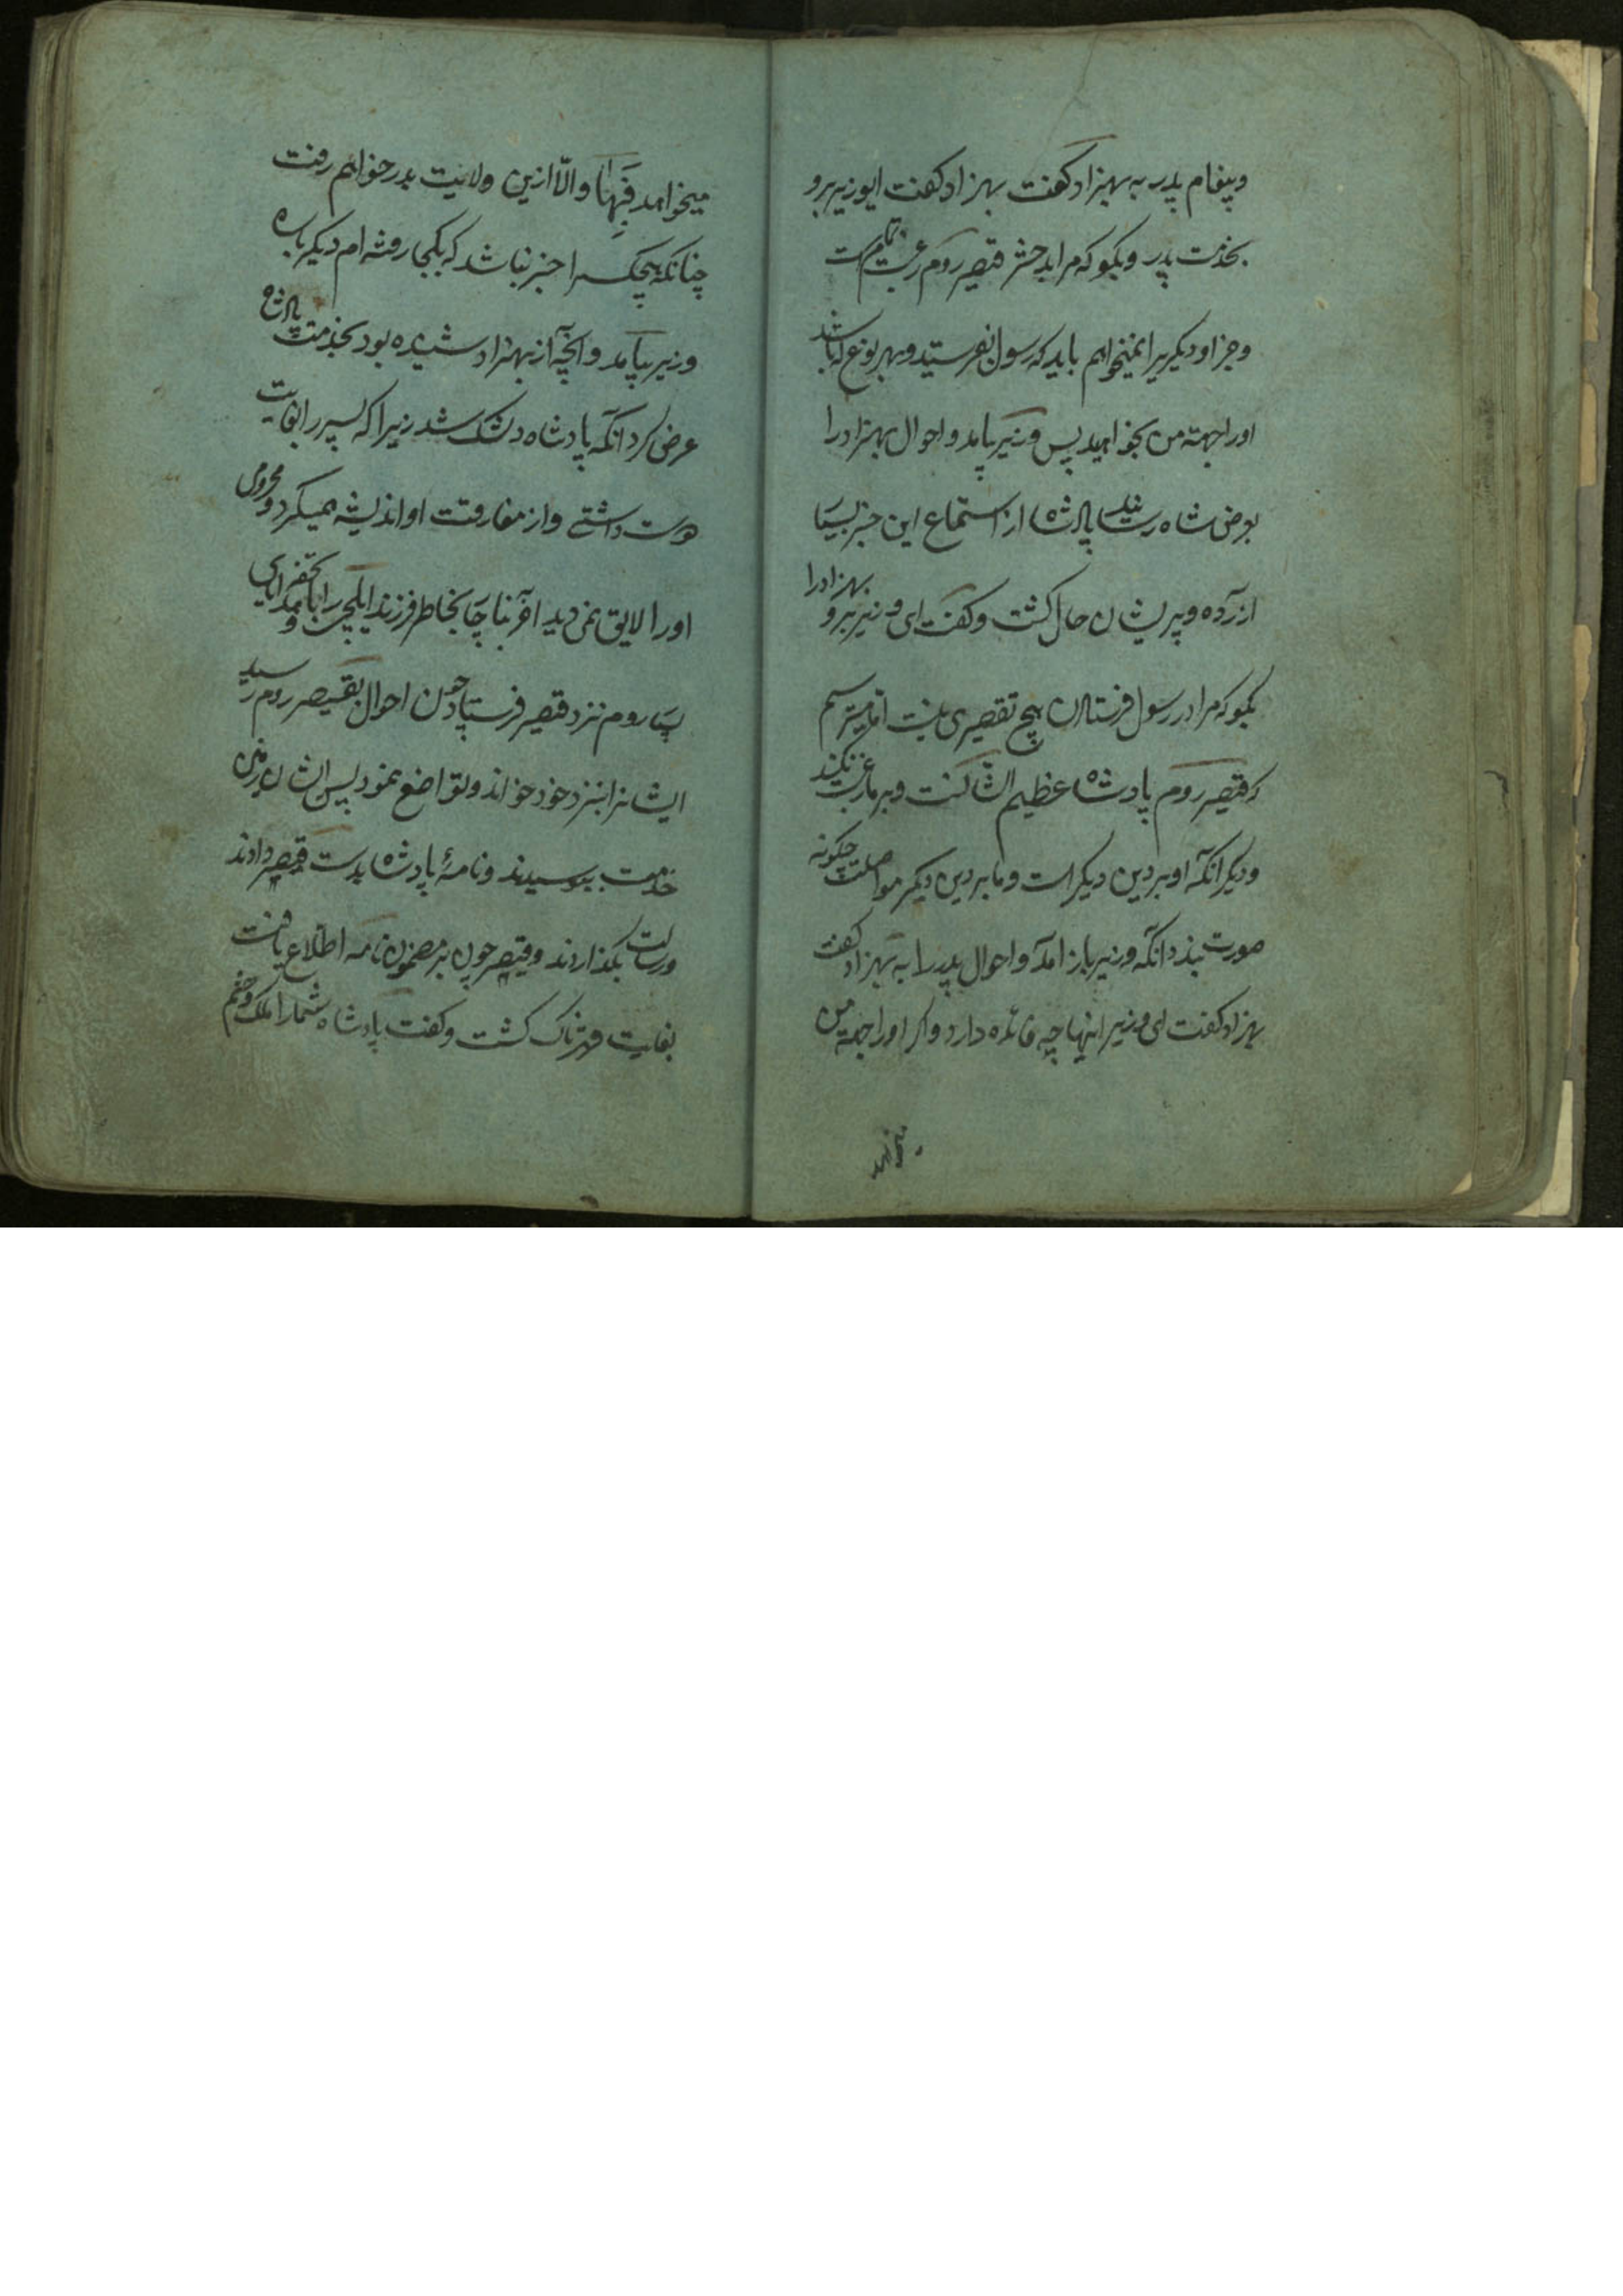 و پیغام پدر به بهزاد کفت بهزاد کفت ایوزیر برو
بخدمت پدر و بکو که مرا بدختر قیصر روم رغبت تمامست
و جز او دیکریرا نمیخواهم باید که رسول بفرستید و بهر نوع که باشد
اورا جهة من بخواهید پس وزیر بیامد و احوال بهزادرا
بعرض شاه رسانید پادشاه از استماع این خبر بسیار
ازرده و پریشان حال کشت و کفت ای وزیر برو بهزادرا
بکو که مرا در رسول فرستادن هیچ تقصیری نیست اما میترسم
که قیصر روم پادشاه عظیم الشانست و بر ما رغبت نکند
و دیکر آنکه او بر دین دیکر است و ما بر دین دیکر مواصلت چکونه
صورت بندد آنکه وزیر باز آمد و احوال پدر را به بهزاد کفت
بهزاد کفت ای وزیر اینها چه فائده دارد و اکر اورا جهة من
میخواهد
میخواهد فبها و الّا ازین ولایت بدر خواهم رفت
چنانکه هیچکسرا خبر نباشد که بکجا رفته ام دیکر باره
وزیر بیامد و آنچه از بهزاد شنیده بود بخدمت پادشاه
عرض کرد آنکه پادشاه دلتنک شد زیرا که پسر را بغایت
دوست داشتی و از مفارقت او اندیشه همیکرد و محرومی
اورا لایق نمی دید آخر بناچار بخاطر فرزند ایلچی را با تحفه و هدایای
بسیار بروم نزد قیصر فرستاد چون احوال بقیصر روم رسید
ایشانرا بنزد خود خواند و تواضع نمود پس ایشان زمین
خدمت ببوسیدند و نامهٔ پادشاه بدست قیصر دادند
و رسالت بکذاردند و قیصر چون بر مضمون نامه اطلاع یافت
بغایت قهرناک کشت و کفت پادشاه شمارا ملک و حشم